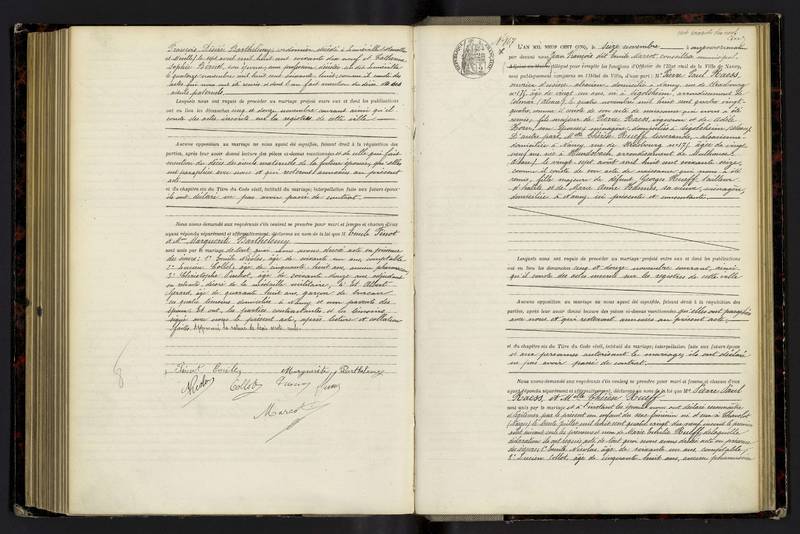 François Désiré Barthélemy, cordonnier décédé à Lunéville (Meurthe
et Moselle) le sept avril mil huit cent soixante dix neuf et Catherine
Sophie
le quatorze novembre mil huit cent
Lesquels nous ont requis de procéder au mariage projeté entre eux et dont les publications
ont eu lieu les dimanches cinq et douze novembre courant ainsi qu'il
conste des actes inscrits sur les registres de cette ville
Aucune opposition au mariage ne nous ayant été signifiée, faisant droit à la réquisition des
parties, après leur avoir donné lecture des pièces ci-dessus mentionnées et de celle qui fait
mention du décès de aïeule maternelle de la future épouse, qu'elles
ont paraphées avec nous et qui resteront annexées au présent
acte
et du chapitre six du Titre du Code civil, intitulé du mariage; interpellation faite aux futurs époux
ils ont déclaré ne pas avoir passé de contrat.
Nous avons demandé aux requérants s'ils veulent se prendre pour mari et femme et chacun d'eux
ayant répondu séparément et affirmativement, déclarons au nom de la loi que M. Emile Finot
et Mlle Marguerite Barthélemy
sont unis par le mariage de tout quoi nous avons dressé acte en présence
des sieurs; 1° Emile Nicolas, âgé de soixante un ans, comptable
2° Lucien Collot, âgé de cinquante huit ans, ancien pharmacien
3° Christophe
en retraite, décoré de la médaille militaire, 4° et Albert
Gérard, âgé de quarante huit ans, garçon de bureau
les quatre témoins domiciliés à Nancy et non parents des
époux. Et ont, les parties contractantes et les témoins,
signé avec nous le présent acte, après lecture et collation
faites.
Finot Emile Marguerite Barthélemy
Nicolas Collot
Marcot
N° 1167
L'AN MIL NEUF CENT CINQ, le seize novembre
par devant nous Jean François dit Emile Marcot, conseiller municipal
délégué pour remplir les fonctions d'Officier de l'État civil de la Ville de Nancy,
sont publiquement comparus en l'Hôtel de Ville, d'une part: M. Pierre Paul Raess,
ouvrier d'usine, alsacien, domicilié à Nancy, rue de Strasbourg
n° 171, âgé de vingt un ans, né à Sigolsheim, arrondissement de
Colmar (Alsace), le quatre novembre mil huit cent quatre vingt
quatre, comme il conste de son acte de naissance qui nous a été
remis, fils majeur de Pierre Raess, vigneron et de Adèle
Horn, son épouse, ménagère, domiciliés à Sigolsheim (Alsace)
D'autre part, Mlle Thérèse Rueff, alsacienne
domiciliée à Nancy, rue de Strasbourg n° 171, âgée de vingt
neuf ans, née à arrondissement de Mulhouse
(Alsace), le vingt sept avril mil huit cent soixante seize,
comme il conste de son acte de naissance qui nous a été
remis, fille majeure de défunt Georges Rueff, tailleur
d'habits et de Marie Anne sa veuve, ménagère,
domiciliée à Nancy, ici présente et consentante
Lesquels nous ont requis de procéder au mariage projeté entre eux et dont les publications
ont eu lieu les dimanches cinq et douze novembre courant, ainsi
qu'il conste des actes inscrits sur les registres de cette ville
Aucune opposition au mariage ne nous ayant été signifiée, faisant droit à la réquisition des
parties, après leur avoir donné lecture des pièces ci-dessus mentionnées qu'elles ont paraphées
avec nous et qui resteront annexées au présent acte
et du chapitre six du Titre du Code civil, intitulé du mariage; interpellation faite aux futurs époux
et aux personnes autorisant le mariage, ils ont déclaré
ne pas avoir passé de contrat.
Nous avons demandé aux requérants s'ils veulent se prendre pour mari et femme et chacun d'eux
ayant répondu séparément et affirmativement, déclarons au nom de la loi que M. Pierre Paul
Raess, et Mlle Thérèse Rueff
sont unis par le mariage et à l'instant les époux nous ont déclaré reconnaître
et légitimer par le présent un enfant du sexe féminin né d'eux à
(Vosges) le trente juillet mil huit cent quatre vingt dix neuf, inscrit le premier
août suivant sous les prénoms et nom de Marie Rueff, de laquelle
déclaration ils ont requis acte de tout quoi nous avons dressé acte en présence
des sieurs; 1° Emile Nicolas, âgé de soixante un ans, comptable,
2° Lucien Collot, âgé de cinquante huit ans, ancien pharmacien